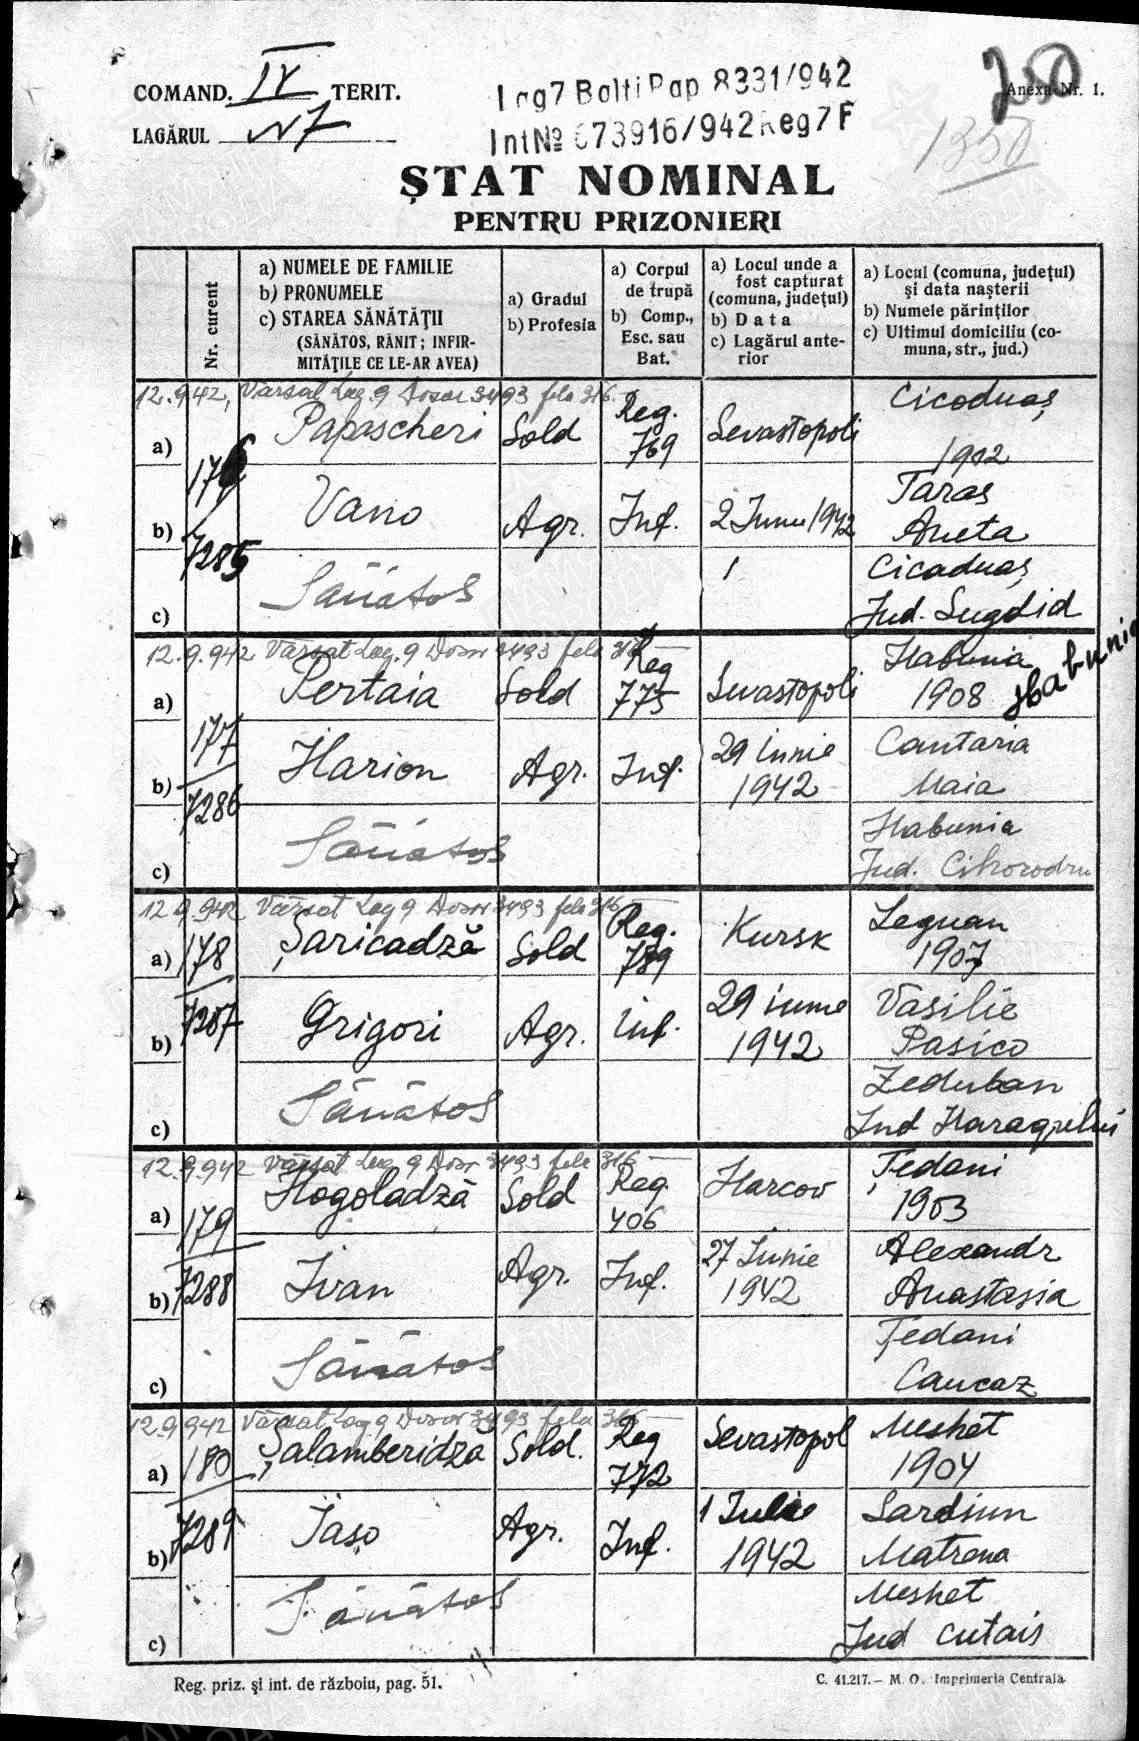 COMAND. IV TERIT.
LAGĂRUL N7
Lag7 Bolti Pap 8331/942
Int№ 673916/942 Reg7F
250
Anexa Nr. 1.
1350
ȘTAT NOMINAL
PENTRU PRIZONIERI
Nr. curent
a) NUMELE DE FAMILIE
b) PRONUMELE
c) STAREA SĂNĂTĂŢII
(SĂNĂTOS, RĂNIT; INFIR-
MITĂŢILE CE LE-AR AVEA)
a) Gradul
b) Profesia
a) Corpul
de trupă
b) Comp.,
Esc. sau
Bat.
a) Locul unde a
fost capturat
(comuna, judeţul)
b) Data
c) Lagărul ante-
rior
a) Locul (comuna, judeţul)
şi data naşterii
b) Numele părinţilor
c) Ultimul domiciliu (co-
muna, str., jud.)
12.9.942, Vărsat Lag. 9 Dosar 3493 fela 316.
a) 176 Papascheri Sold Reg. 769 Sevastopoli Cicoduaș
1902
b) 7285 Vano Agr. Inf. 2 Iunu 1942 Taras
Aneta
c) Sănătos Cicaduaș
Jud. Sugdid
12.9.942 Vărsat Lag. 9 Dosar 3493 fela 316
a) 177 Pertaia Sold Reg 775 Sevastopoli Habunia
1908 Habunia
b) 7286 Ilarion Agr. Inf. 29 Iunie 1942 Cantaria
Maia
c) Sănătos Habunia
Jud. Cihorodru
12.9.942 Vărsat Lag 9 Dosar 3493 fela 316
a) 178 Șaricadză Sold Reg. 789 Kursk Leguan
1907
b) 7287 Grigori Agr. inf. 29 iunie 1942 Vasilie
Pasico
c) Sănătos Zeduban
Jud Haragpului
12.9.942 Vărsat Lag 9 Dosar 3493 fela 316
a) 179 Hogoladză Sold Reg 406 Harcov Țedani
1903
b) 7288 Ivan Agr. Inf. 27 Iunie 1942 Alexandr
Anastasia
c) Sănătos Țedani
Caucaz
12.9.942 Vărsat Lag 9 Dosar 3493 fela 316
a) 180 Șalamberidza Sold. Reg 772 Sevastopol Meshet
1904
b) 7289 Iașo Agr. Inf. 1 Iulie 1942 Sardiun
Matrona
c) Sănătos Meshet
Jud Cutais
Reg. priz. şi int. de războiu, pag. 51.
C. 41.217. – M. O. Imprimeria Centrala